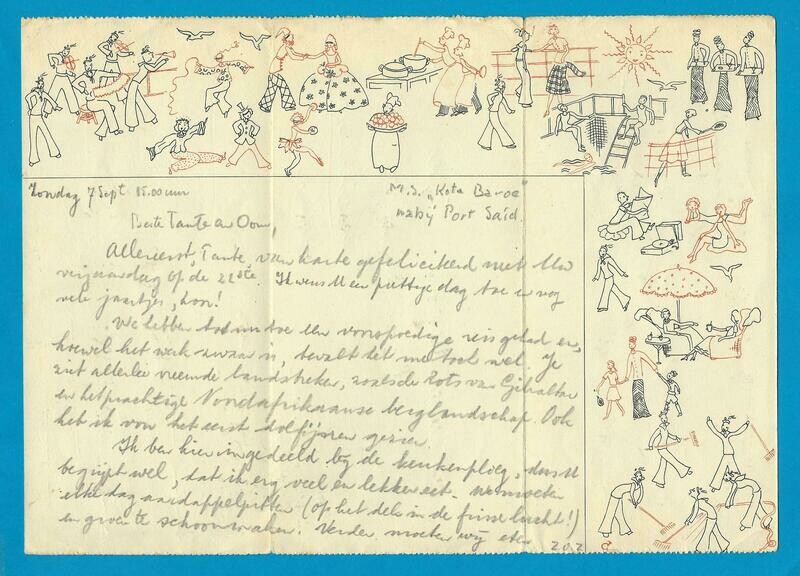 Zondag 7 Sept 15.00 uur
M.S. „Kota Baroe"
nabij Port Saïd.
Beste Tante en Oom,
Allereerst, Tante, van harte gefeliciteerd met Uw
verjaardag op de 22ste. Ik wens U een prettige dag toe en nog
vele jaartjes, hoor!
We hebben tot nu toe een voorspoedige reis gehad en,
hoewel het werk zwaar is, bevalt het me toch wel. Je
ziet allerlei vreemde landstreken, zoals de Rots van Gibraltar
en het prachtige Noordafrikaanse berglandschap. Ook
heb ik voor het eerst dolfijnen gezien.
Ik ben hier ingedeeld bij de keukenploeg, dus U
begrijpt wel, dat ik erg veel en lekker eet. We moeten
elke dag aardappelpitten (op het dek in de frisse lucht!)
en groente schoonmaken. Verder moeten wij eten
z.o.z.